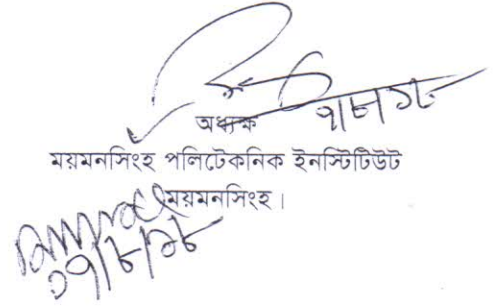 ৭/৮/১৮
অধ্যক্ষ
ময়মনসিংহ পলিটেকনিক ইনস্টিটিউট
ময়মনসিংহ।
০৭/৮/১৮